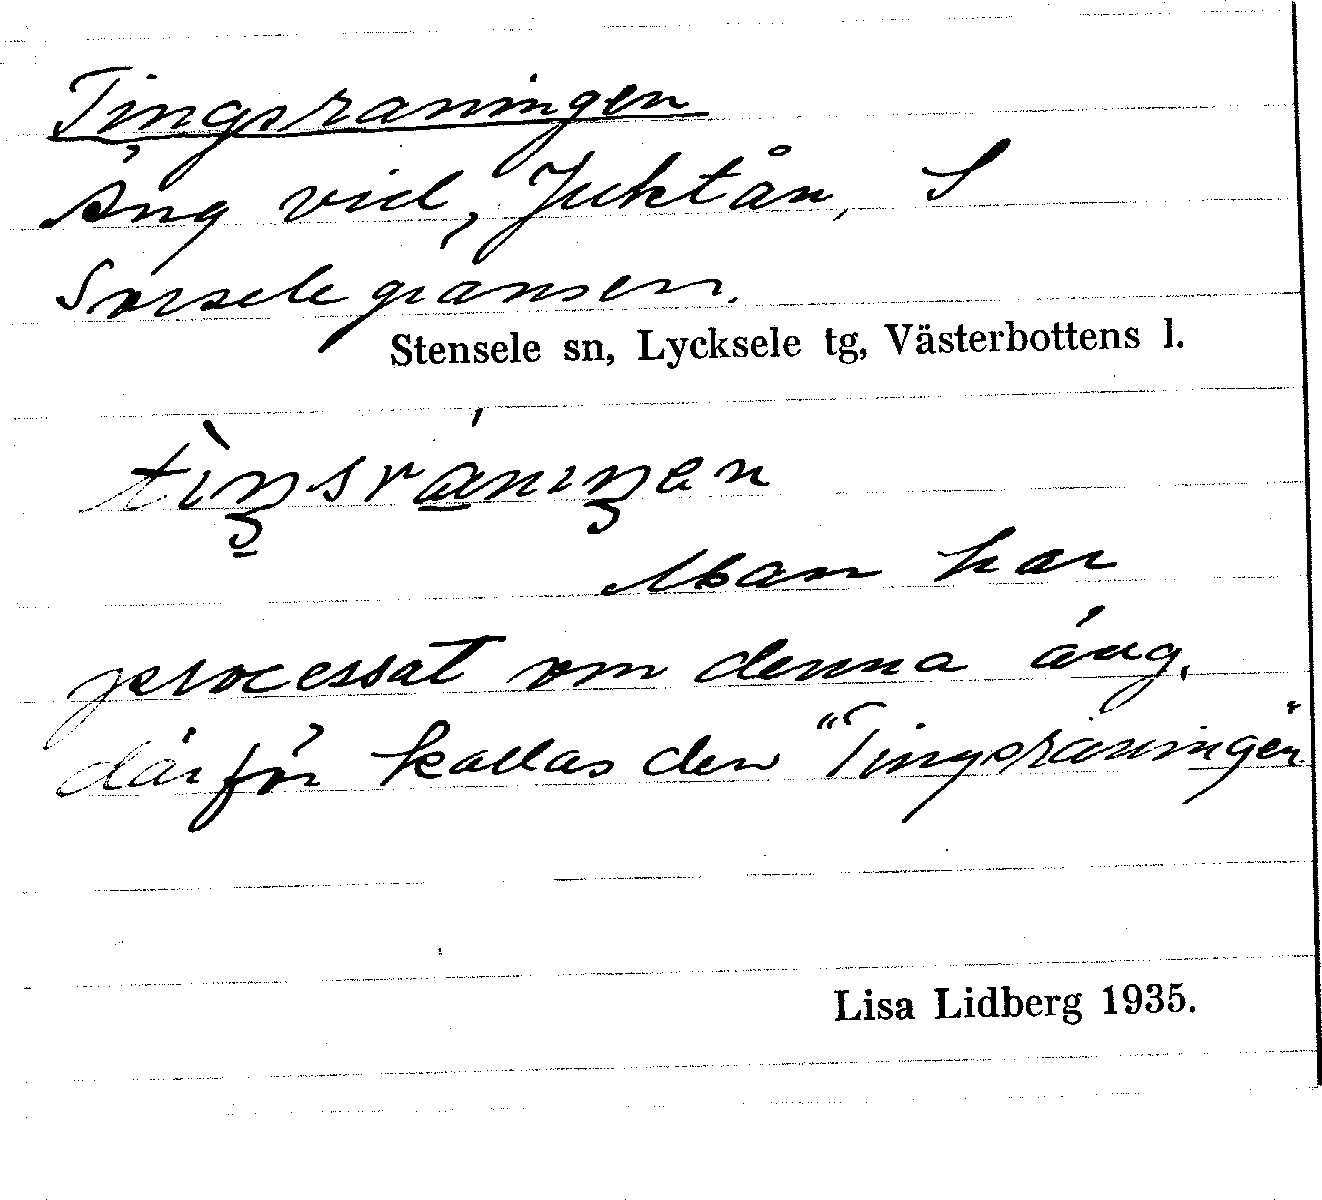 Tingsraningen
Äng vid Juktån, S
Sorselegränsen.
Stensele sn, Lycksele tg, Västerbottens l.
Man har
processat om denna äng,
därför kallas den "Tingsraningen"
Lisa Lidberg 1935.